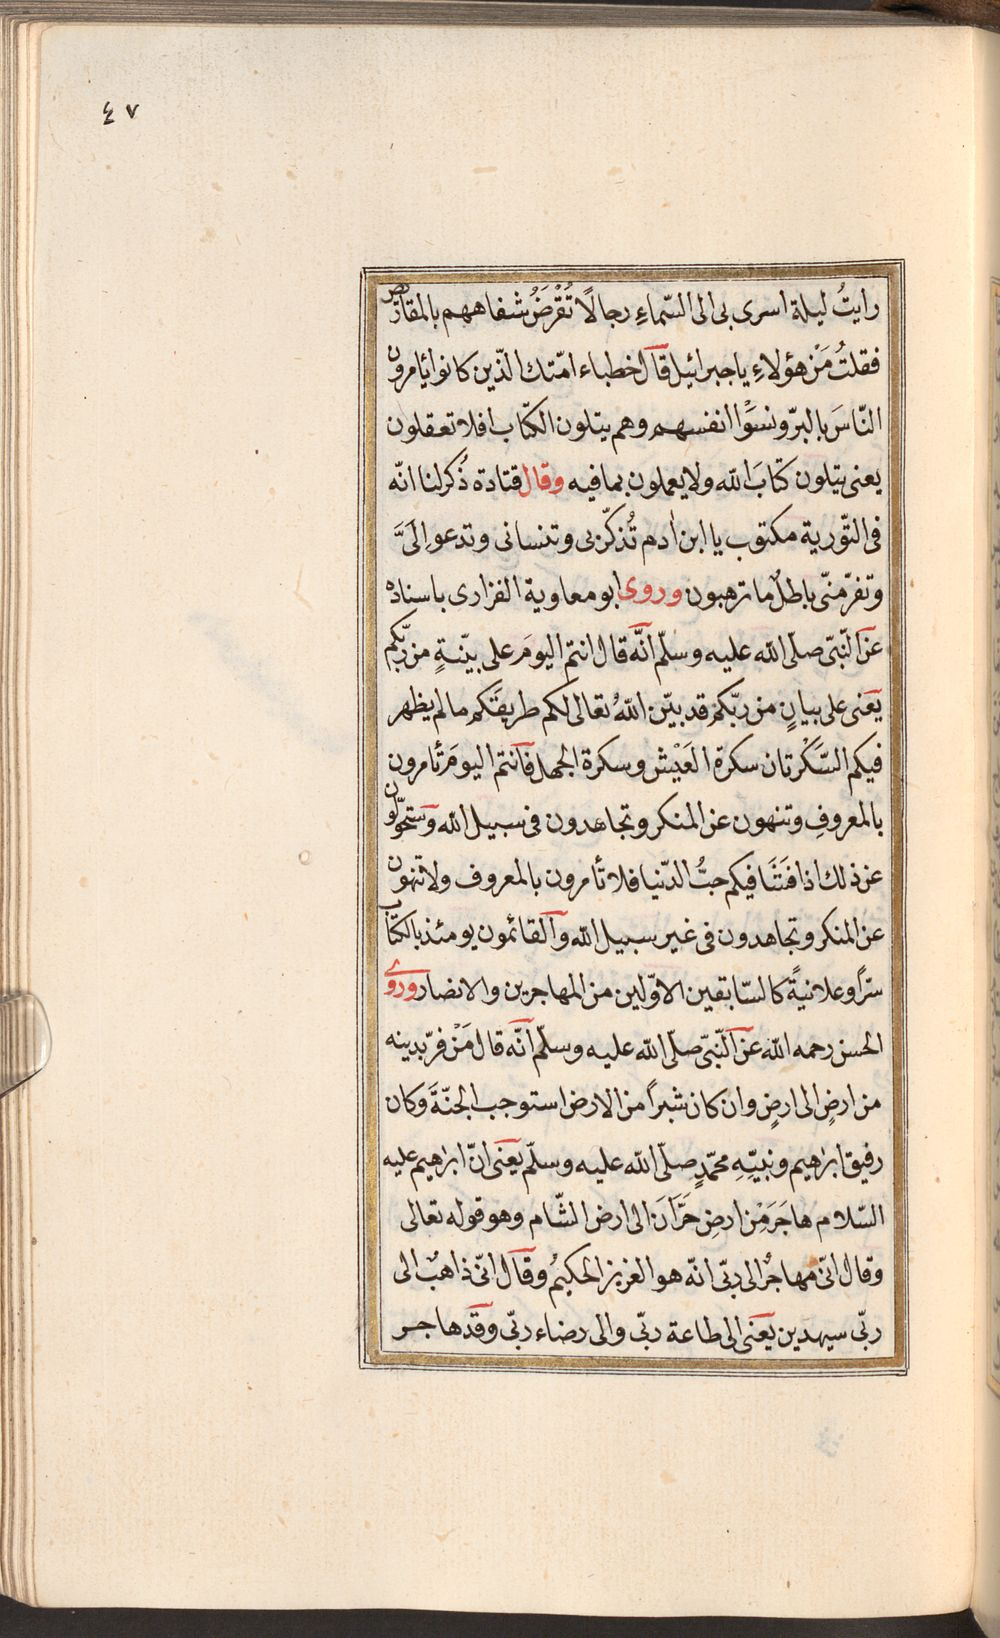 ٤٧
رايتُ ليلة اسرى بى الى السّماءِ رجالًا تُقْرَضُ شفاههم بالمقارض
فقلتُ مَنْ هؤلاءِ يا جبرائيل قال خطباء امّتك الّذين كانوا يأمرون
النّاسَ بالبرّ ونسَوْا انفسهم وهم يتلون الكتاب افلا تعقلون
يعنى يتلون كتابَ الله ولا يعملون بما فيه وقال قتادة ذُكر لنا انّه
فى التّورية مكتوب يا ابن اٰدم تُذكّر بى وتنسانى وتدعو اِلَىَّ
وتفرّ منّى باطلٌ ما ترهبون وروى ابو معاوية الفزارى باسناده
عن النّبىّ صلّى الله عليه وسلّم انّه قال انتم اليومَ على بيّنةٍ من ربّكم
يعنى على بيانٍ من ربّكم قد بيّن اللهُ تعالى لكم طريقَكم ما لم يظهر
فيكم السَّكْرتان سكرة العَيْش وسكرة الجهل فانتم اليومَ تأمرون
بالمعروفِ وتنهون عن المنكر وتجاهدون فى سبيل الله وستحوّلون
عن ذلك اذا فَشَا فيكم حبُّ الدّنيا فلا تأمرون بالمعروف ولا تنهون
عن المنكر وتجاهدون فى غير سبيل الله والقائمون يومئذ بالكتاب
سرًّا وعلانيةً كالسّابقين الاوّلين من المهاجرين والانصار وروى
الحسن رحمه الله عن النّبىّ صلّى الله عليه وسلّم انّه قال مَنْ فرّ بدينه
من ارضٍ الى ارضٍ وان كان شبراً من الارض استوجب الجنّةَ وكان
رفيق ابرٰهيم ونبيّهِ محمّدٍ صلّى الله عليه وسلّم يعنى انّ ابرٰهيم عليه
السّلام هاجَرَ مِنْ ارضِ حَرَّانَ الى ارض الشّام وهو قوله تعالى
وقال انّى مهاجرٌ الى ربّى انّه هو العزيز الحكيمُ وقال انّى ذاهبٌ الى
ربّى سيهدين يعنى الى طاعة ربّى والى رضاء ربّى وقد هاجر